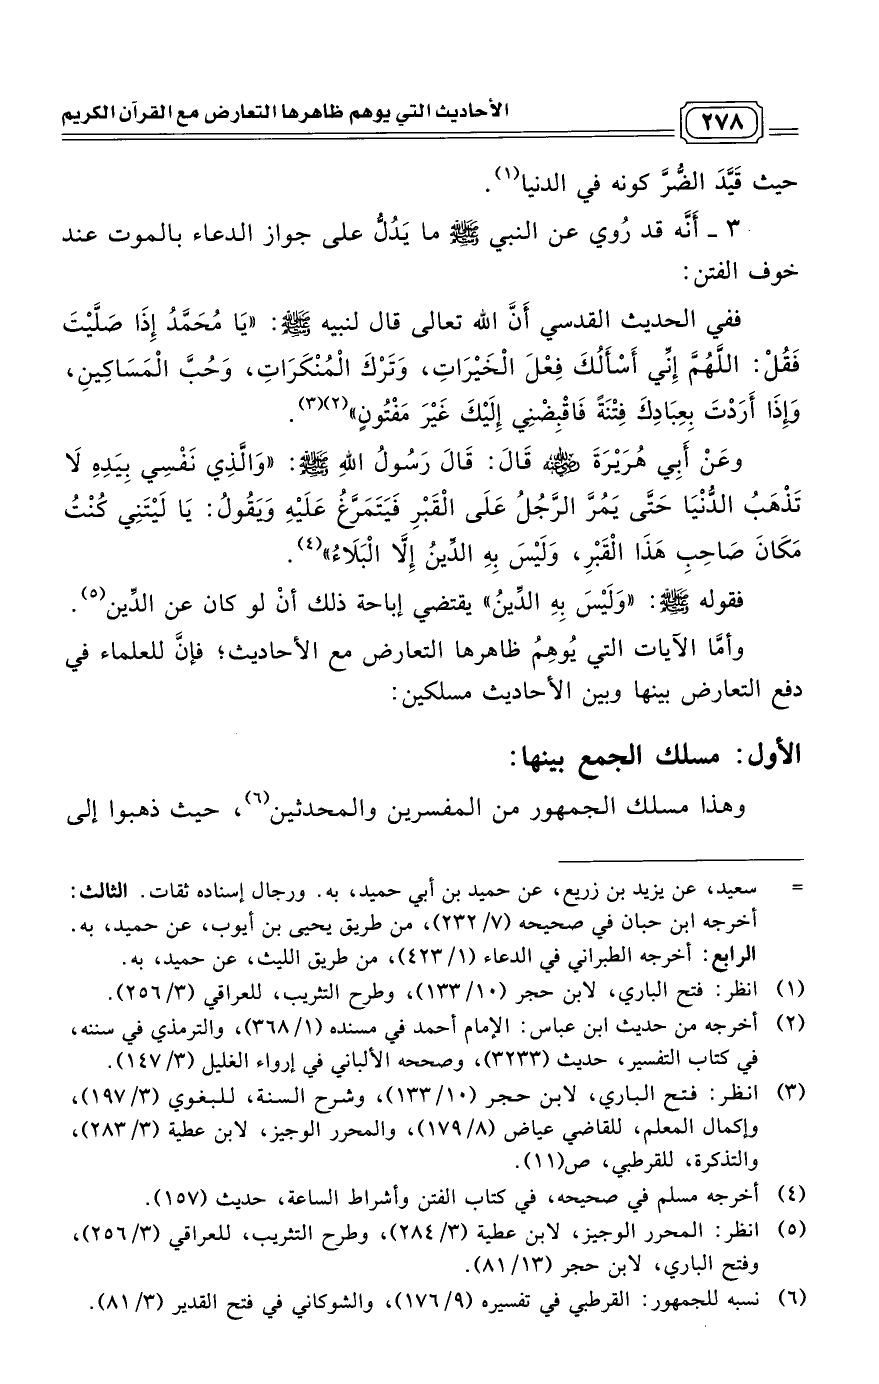 ٢٧٨ الأحاديث التي يوهم ظاهرها التعارض مع القرآن الكريم
حيث قَيَّدَ الضُّرَّ كونه في الدنيا(١).
٣ ـ أنَّه قد رُوي عن النبي ﷺ ما يَدُلُّ على جواز الدعاء بالموت عند
خوف الفتن:
ففي الحديث القدسي أنَّ الله تعالى قال لنبيه ﷺ: «يَا مُحَمَّدُ إِذَا صَلَّيْتَ
فَقُلْ: اللَّهُمَّ إِنِّي أَسْأَلُكَ فِعْلَ الْخَيْرَاتِ، وَتَرْكَ الْمُنْكَرَاتِ، وَحُبَّ الْمَسَاكِينِ،
وَإِذَا أَرَدْتَ بِعِبَادِكَ فِتْنَةً فَاقْبِضْنِي إِلَيْكَ غَيْرَ مَفْتُونٍ»(٢)(٣).
وعَنْ أَبِي هُرَيْرَةَ رضي الله عنه قَالَ: قَالَ رَسُولُ اللهِ ﷺ: «وَالَّذِي نَفْسِي بِيَدِهِ لَا
تَذْهَبُ الدُّنْيَا حَتَّى يَمُرَّ الرَّجُلُ عَلَى الْقَبْرِ فَيَتَمَرَّغُ عَلَيْهِ وَيَقُولُ: يَا لَيْتَنِي كُنْتُ
مَكَانَ صَاحِبِ هَذَا الْقَبْرِ، وَلَيْسَ بِهِ الدِّينُ إِلَّا الْبَلَاءُ»(٤).
فقوله ﷺ: «وَلَيْسَ بِهِ الدِّينُ» يقتضي إباحة ذلك أنْ لو كان عن الدِّين(٥).
وأمَّا الآيات التي يُوهِمُ ظاهرها التعارض مع الأحاديث؛ فإنَّ للعلماء في
دفع التعارض بينها وبين الأحاديث مسلكين:
الأول: مسلك الجمع بينها:
وهذا مسلك الجمهور من المفسرين والمحدثين(٦)، حيث ذهبوا إلى
= سعيد، عن يزيد بن زريع، عن حميد بن أبي حميد، به. ورجال إسناده ثقات. الثالث:
أخرجه ابن حبان في صحيحه (٧/ ٢٣٢)، من طريق يحيى بن أيوب، عن حميد، به.
الرابع: أخرجه الطبراني في الدعاء (١/ ٤٢٣)، من طريق الليث، عن حميد، به.
(١) انظر: فتح الباري، لابن حجر (١٠/ ١٣٣)، وطرح التثريب، للعراقي (٣/ ٢٥٦).
(٢) أخرجه من حديث ابن عباس: الإمام أحمد في مسنده (١/ ٣٦٨)، والترمذي في سننه،
في كتاب التفسير، حديث (٣٢٣٣)، وصححه الألباني في إرواء الغليل (٣/ ١٤٧).
(٣) انظر: فتح الباري، لابن حجر (١٠/ ١٣٣)، وشرح السنة، للبغوي (٣/ ١٩٧)،
وإكمال المعلم، للقاضي عياض (٨/ ١٧٩)، والمحرر الوجيز، لابن عطية (٣/ ٢٨٣)،
والتذكرة، للقرطبي، ص(١١).
(٤) أخرجه مسلم في صحيحه، في كتاب الفتن وأشراط الساعة، حديث (١٥٧).
(٥) انظر: المحرر الوجيز، لابن عطية (٣/ ٢٨٤)، وطرح التثريب، للعراقي (٣/ ٢٥٦)،
وفتح الباري، لابن حجر (١٣/ ٨١).
(٦) نسبه للجمهور: القرطبي في تفسيره (٩/ ١٧٦)، والشوكاني في فتح القدير (٣/ ٨١).